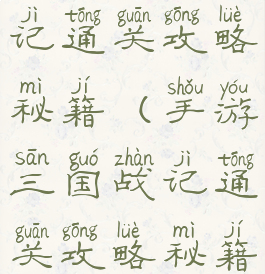 jì tōng guān gōng lüè
记通关攻略
mì jí shǒu yóu
秘籍（手游
sān guó zhàn jì tōng
三国战记通
guān gōng lüè mì jí
关攻略秘籍